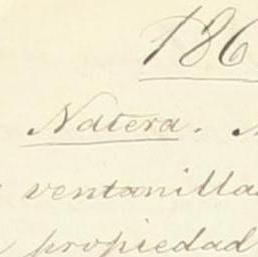 186
Natera.
ventanilla
propiedad